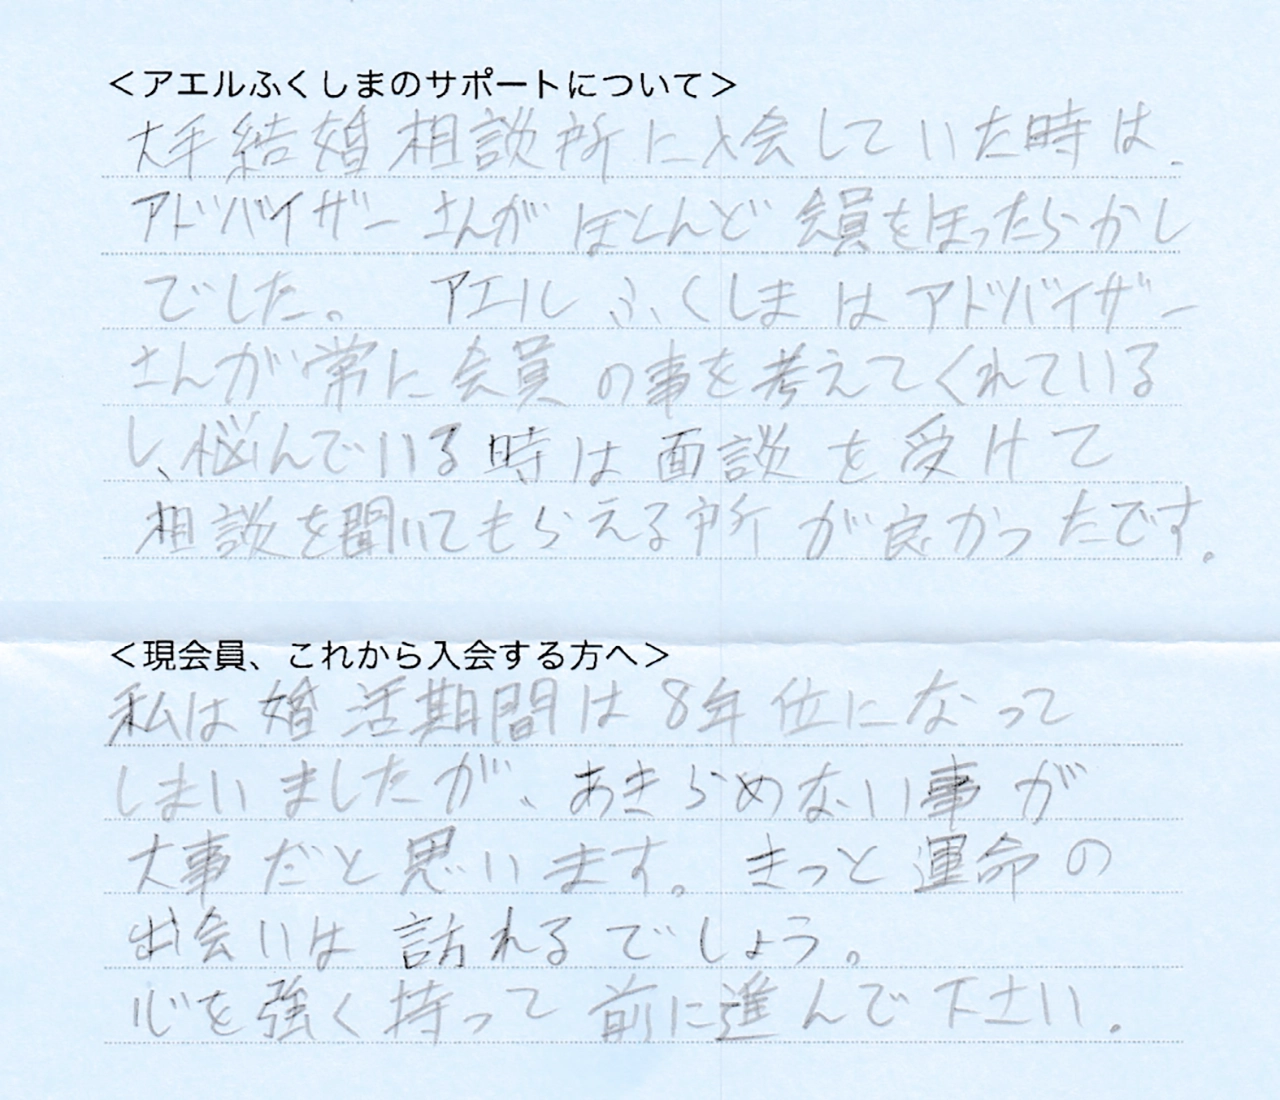 ＜アエルふくしまのサポートについて＞
大手結婚相談所に入会していた時は、
アドバイザーさんがほとんど会員をほったらかし
でした。 アエルふくしまはアドバイザー
さんが常に会員の事を考えてくれている
し、悩んでいる時は面談を受けて
相談を聞いてもらえる所が良かったです。
＜現会員、これから入会する方へ＞
私は婚活期間は8年位になって
しまいましたが、あきらめない事が
大事だと思います。きっと運命の
出会いは訪れるでしょう。
心を強く持って前に進んで下さい。